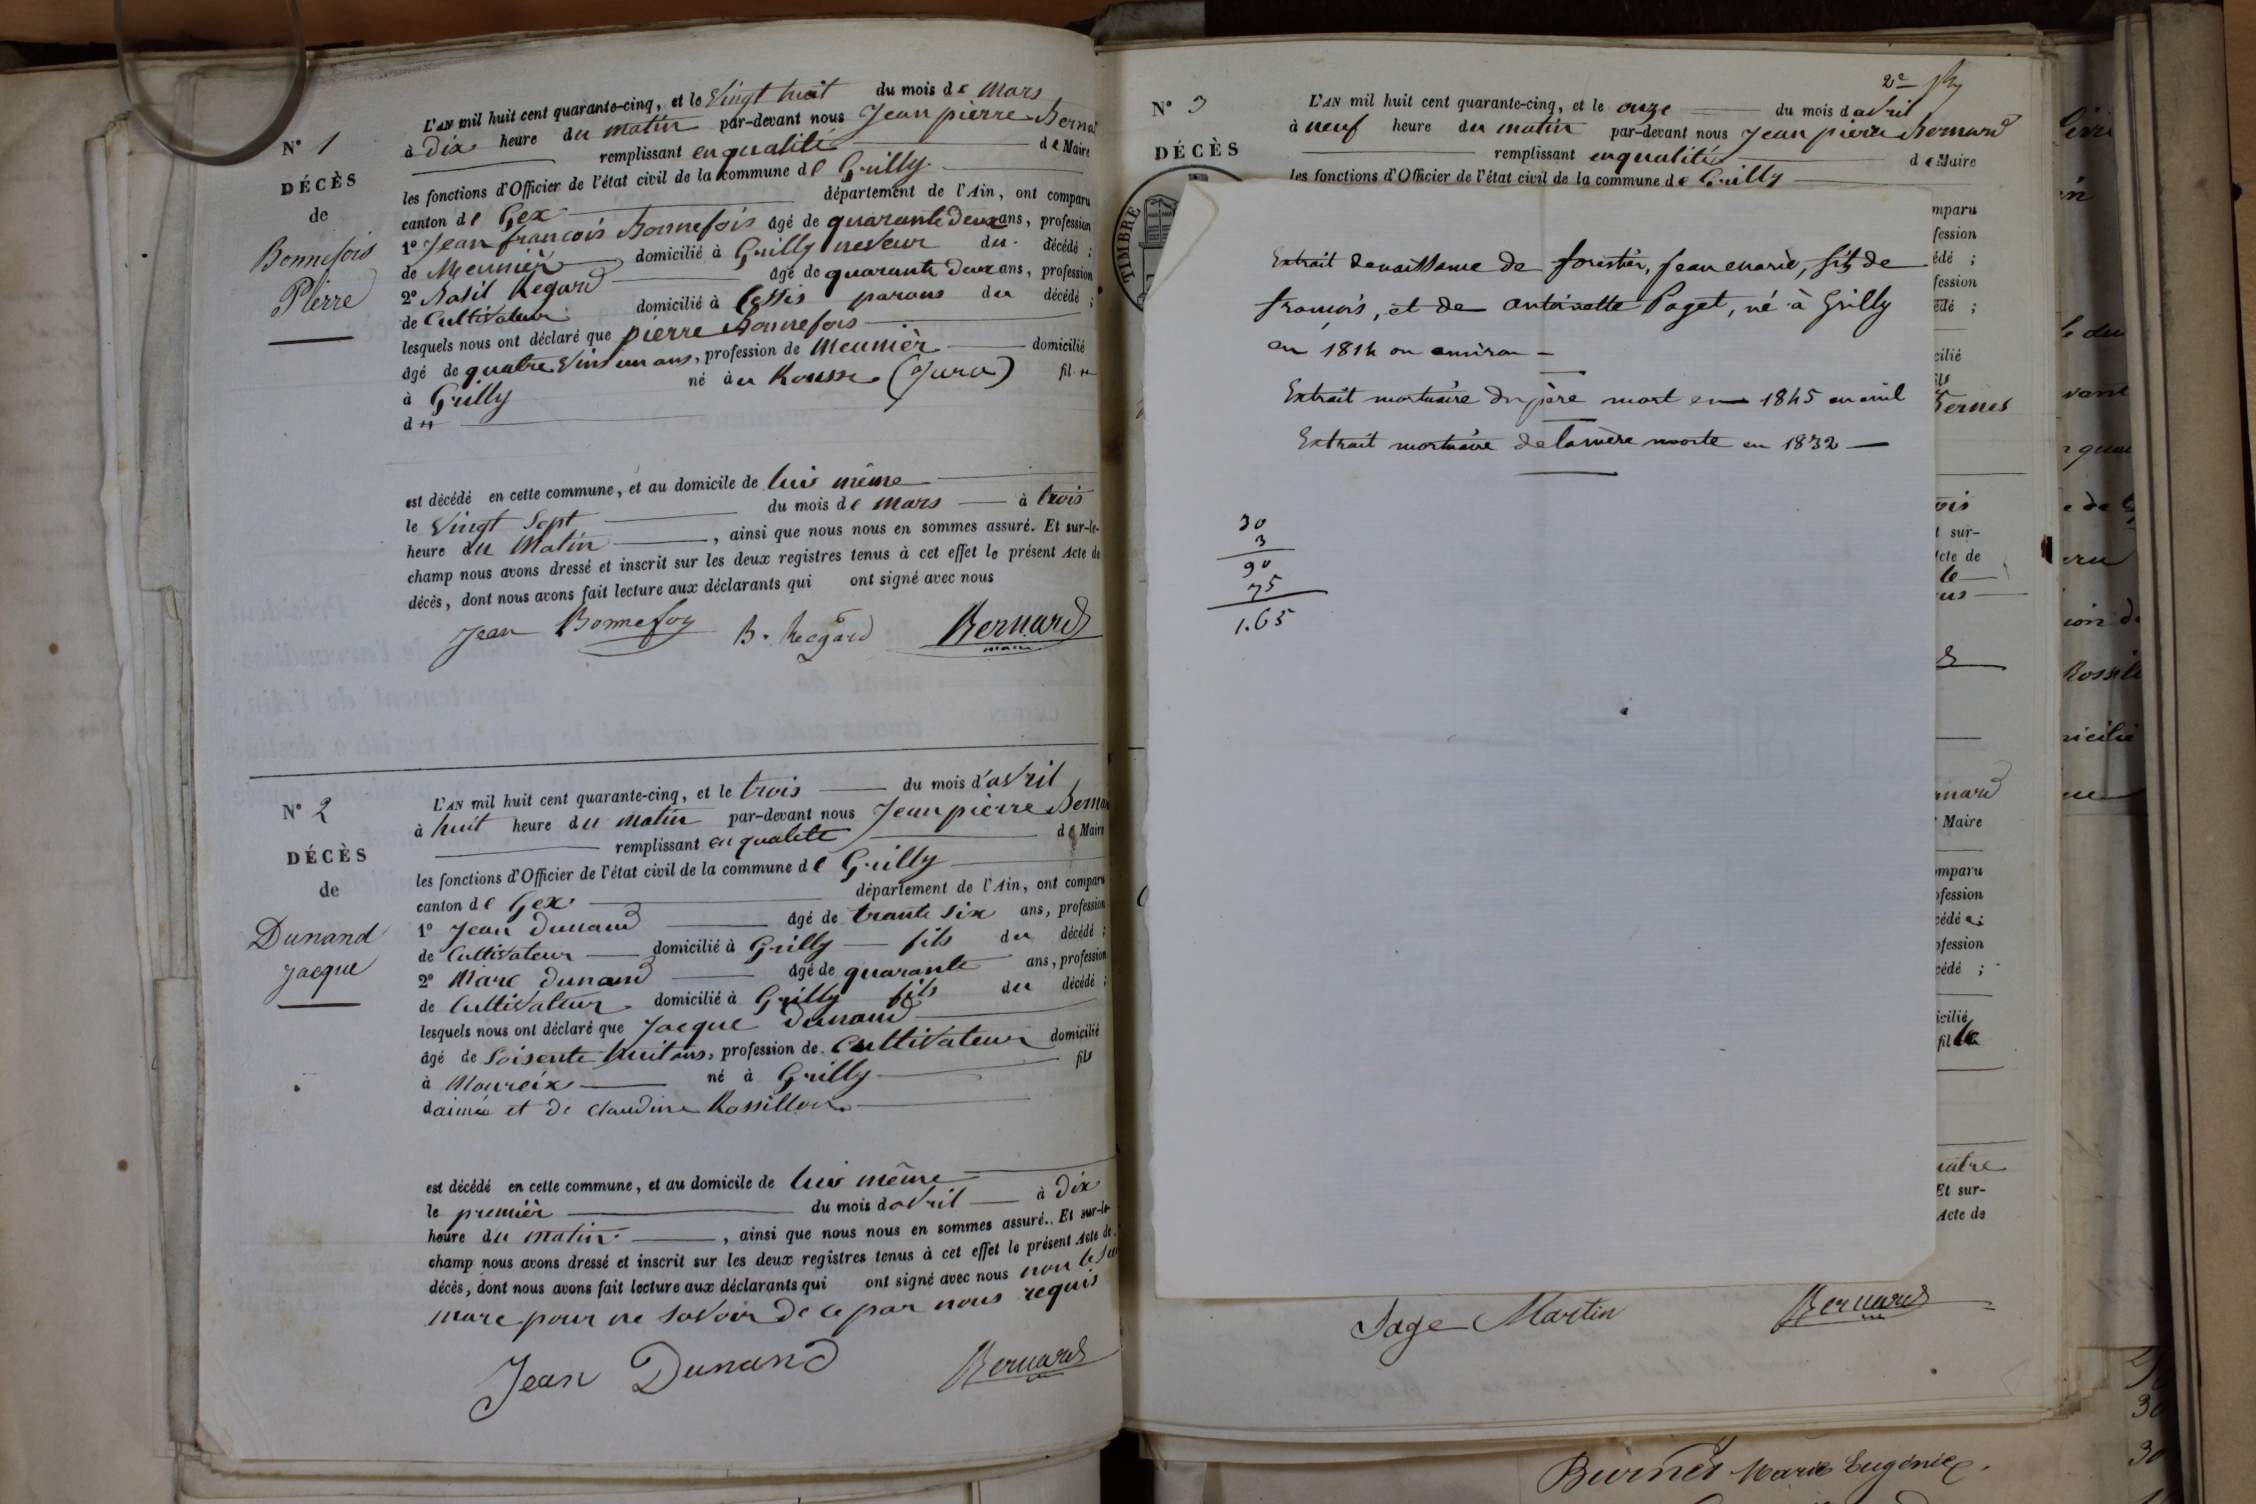 N° 1
DÉCÈS
de
Bonnefois
Pierre
L'AN mil huit cent quarante-cinq, et le Vingt huit du mois de Mars
à dix heure du matin par-devant nous Jean pierre Bernar
remplissant en qualité de Maire
les fonctions d'Officier de l'état civil de la commune de Grilly
canton de Gex département de l'Ain, ont comparu
1° Jean francois Bonnefois âgé de quarante deux ans, profession
de Meunièr domicilié à Grilly neveur du décédé ;
2° Basil Regard âgé de quarante deux ans, profession
de Cultivateur domicilié à Cessis parans du décédé ;
lesquels nous ont déclaré que pierre Bonnefois
âgé de quatre Vins un ans, profession de Meunièr domicilié
à Grilly né à u Rousse (Jura) fil
d
est décédé en cette commune, et au domicile de lui même
le Vingt Sept du mois de mars à trois
heure du Matin , ainsi que nous nous en sommes assuré. Et sur-le-
champ nous avons dressé et inscrit sur les deux registres tenus à cet effet le présent Acte de
décès, dont nous avons fait lecture aux déclarants qui ont signé avec nous
Jean Bonnefoy B. Regard Bernard
maire
N° 2
DÉCÈS
de
Dunand
Jacque
L'AN mil huit cent quarante-cinq, et le trois du mois d'avril
à huit heure du matin par-devant nous Jean pierre Berna
remplissant en qualité de Maire
les fonctions d'Officier de l'état civil de la commune de Grilly
canton de Gex département de l'Ain, ont comparu
1° Jean Dunand âgé de trante six ans, profession
de Cultivateur domicilié à Grilly fils du décédé ;
2° Marc Dunand âgé de quarante ans, profession
de Cultivateur domicilié à Grilly fils du décédé ;
lesquels nous ont déclaré que Jacque Dunand
âgé de Soisente huit ans, profession de Cultivateur domicilié
à Moureix né à Grilly fils
daimée et de claudine Rossillon
est décédé en cette commune, et au domicile de lui même
le premièr du mois davril à dix
heure du matin , ainsi que nous nous en sommes assuré. Et sur-le-
champ nous avons dressé et inscrit sur les deux registres tenus à cet effet le présent Acte de
décès, dont nous avons fait lecture aux déclarants qui ont signé avec nous non le
marc pour ne savoir de ce par nous requis
Jean Dunand Bernard
2e
N° 3
DÉCÈS
L'AN mil huit cent quarante-cinq, et le onze du mois davril
à neuf heure du matin par-devant nous Jean pierre Bernard
remplissant en qualité de Maire
les fonctions d'Officier de l'état civil de la commune de Grilly
TIMBRE
Extrait de naissance de forestier, jean marie, fils de
francois, et de antoinette Paget, né à Grilly
en 1814 ou environ
Extrait mortuaire du père mort en 1845 en avril
Extrait mortuaire de la mère morte en 1832
30
3
90
75
1.65
mparu
fession
édé ;
fession
édé ;
cilié
ils
Bernes
ois
t sur-
Acte de
le
us
nard
Maire
omparu
ofession
cédé
ofession
cédé ;
icilié
fil
uatre
Et sur-
Acte de
Sage Martin Bernard
Burnet Marie Eugénie